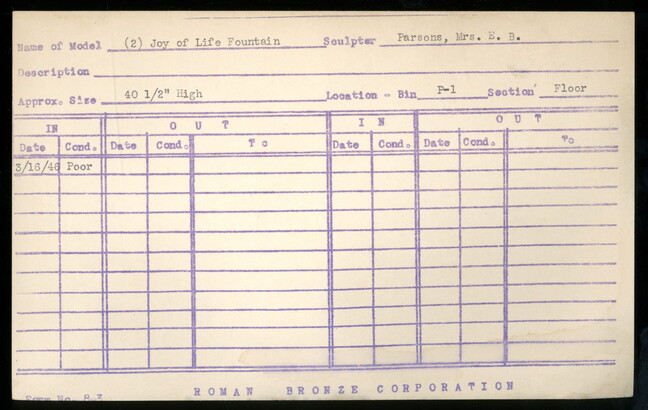 Name of Model (2) Joy of Life Fountain Sculptor Parsons, Mrs. E. B.
Description
Approx. Size 40 1/2" High Location - Bin P-1 Section Floor
IN OUT IN OUT
Date Cond. Date Cond. To Date Cond. Date Cond. To
3/16/46 Poor
Form No. 8-3 ROMAN BRONZE CORPORATION